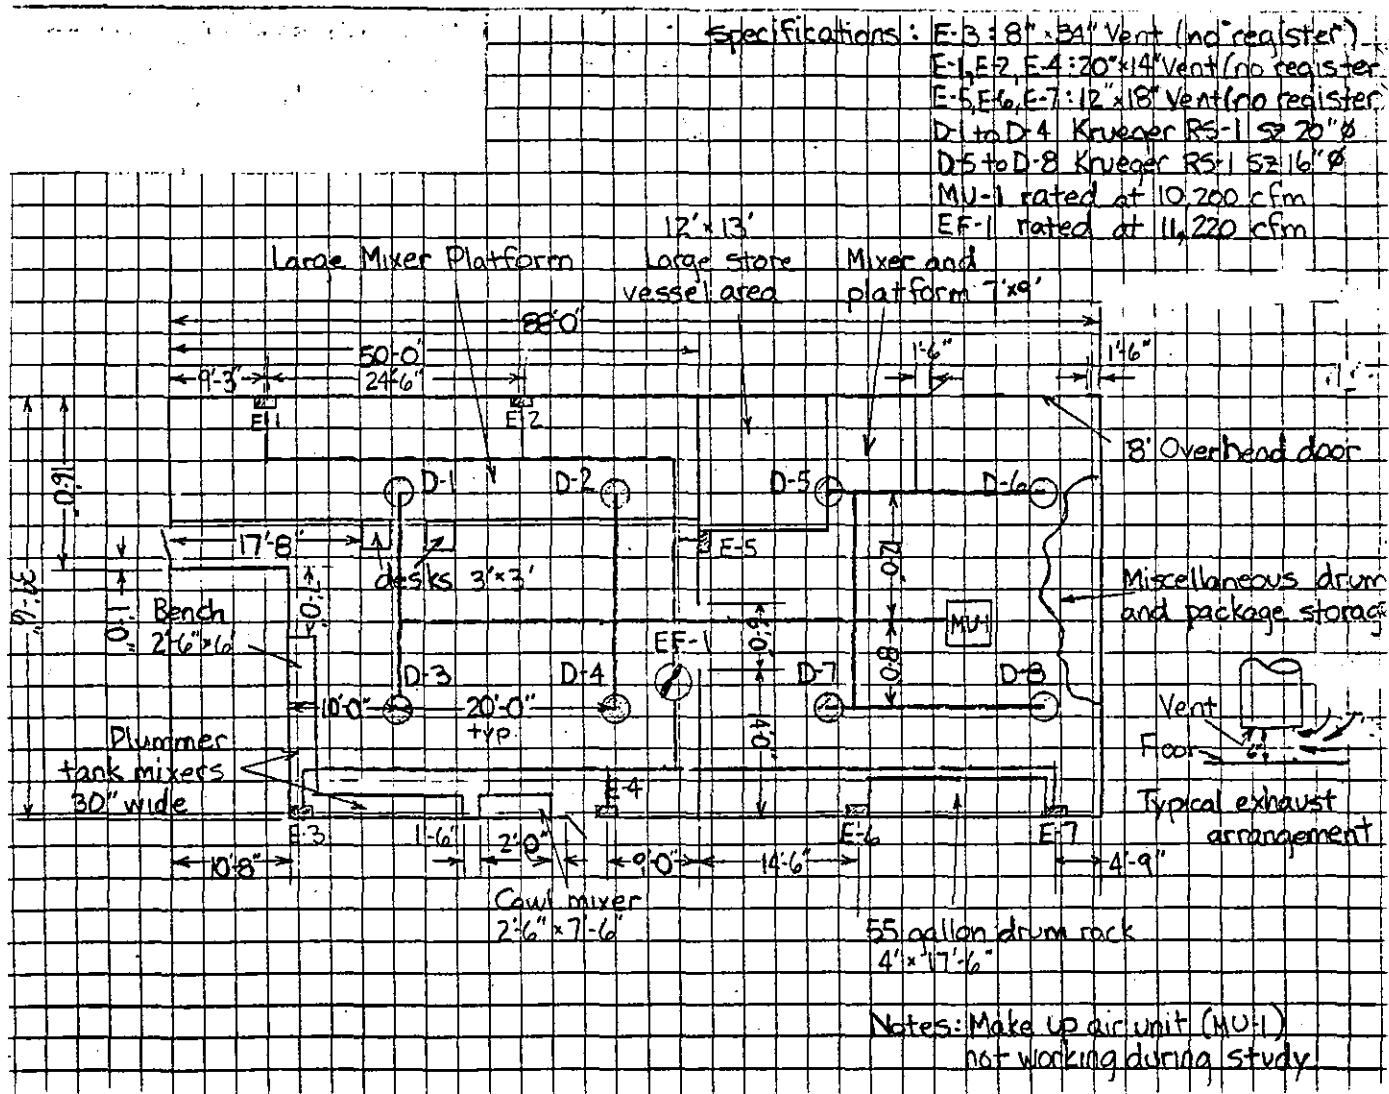 Specifications: E-3: 8" x 34" Vent (no register)
E-1, E-2, E-4: 20" x 14" Vent (no register
E-5, E-6, E-7: 12" x 18" Vent (no register)
D-1 to D-4 Krueger RS-1 SZ 20" Ø
D-5 to D-8 Krueger RS-1 SZ 16" Ø
MU-1 rated at 10,200 cfm
EF-1 rated at 11,220 cfm
12' x 13'
Large Mixer Platform
Large store
vessel area
Mixer and
platform 7'x9'
88'-0"
50'-0"
1'-6"
1'-6"
9'-3"
24'-6"
E-1
E-2
8' Overhead door
16'-0"
D-1
D-2
D-5
D-6
17'-8"
E-5
desks 3'x3'
12'-0"
Miscellaneous drum
and package storag
39'-6"
1'-0"
7'-0"
Bench
2'-6" x 6'
EF-1
6'-0"
MU-1
8'-0"
D-3
D-4
D-7
D-8
10'-0"
20'-0"
typ.
14'-0"
Vent
Floor
6"
Plummer
tank mixers
30" wide
E-4
Typical exhaust
arrangement
E-3
1'-6"
2'-0"
E-6
E-7
10'-8"
9'-0"
14'-6"
4'-9"
Cowl mixer
2'-6" x 7'-6"
55 gallon drum rack
4' x 17'-6"
Notes: Make up air unit (MU-1)
not working during study